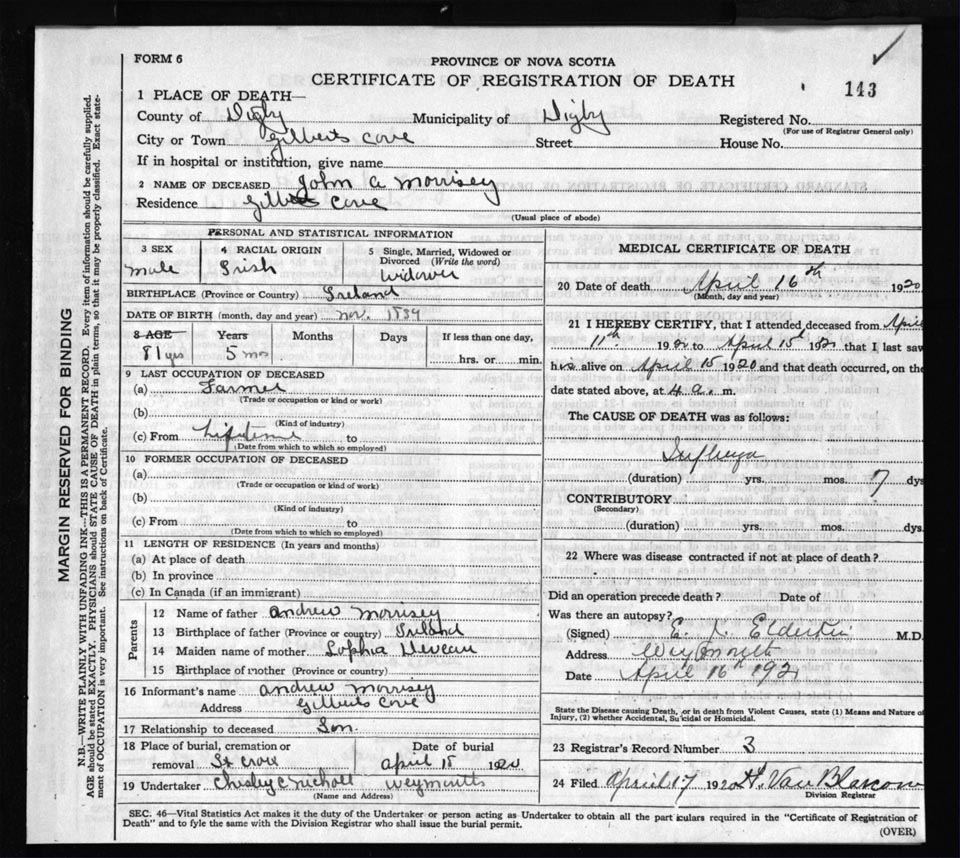 FORM 6
PROVINCE OF NOVA SCOTIA
CERTIFICATE OF REGISTRATION OF DEATH
143
1 PLACE OF DEATH—
County of Digby Municipality of Digby Registered No.
(For use of Registrar General only)
City or Town Gilberts Cove Street House No.
If in hospital or institution, give name
2 NAME OF DECEASED John A Morrisey
Residence Gilberts Cove
(Usual place of abode)
PERSONAL AND STATISTICAL INFORMATION
3 SEX 4 RACIAL ORIGIN 5 Single, Married, Widowed or
Divorced (Write the word)
Male Irish Widower
BIRTHPLACE (Province or Country) Ireland
DATE OF BIRTH (month, day and year) Nov. 1839
8 AGE Years Months Days If less than one day,
81 yrs 5 mo hrs. or min.
9 LAST OCCUPATION OF DECEASED
(a) Farmer
(Trade or occupation or kind of work)
(b)
(Kind of industry)
(c) From Lifetime to
(Date from which to which so employed)
10 FORMER OCCUPATION OF DECEASED
(a)
(Trade or occupation or kind of work)
(b)
(Kind of industry)
(c) From to
(Date from which to which so employed)
11 LENGTH OF RESIDENCE (In years and months)
(a) At place of death
(b) In province
(c) In Canada (if an immigrant)
Parents
12 Name of father Andrew Morrisey
13 Birthplace of father (Province or country) Ireland
14 Maiden name of mother Sophia
15 Birthplace of mother (Province or country)
16 Informant's name Andrew Morrisey
Address Gilberts Cove
17 Relationship to deceased Son
18 Place of burial, cremation or Date of burial
removal St Croix April 18 1920
19 Undertaker Weymouth
(Name and Address)
MEDICAL CERTIFICATE OF DEATH
20 Date of death April 16th 1920
(Month, day and year)
21 I HEREBY CERTIFY, that I attended deceased from April
11th 192 to April 15th 192 that I last saw
his alive on April 15 1920 and that death occurred, on the
date stated above, at 4 a. m.
The CAUSE OF DEATH was as follows:
Influenza
(duration) yrs. mos. 7 dys
CONTRIBUTORY
(Secondary)
(duration) yrs. mos. dys.
22 Where was disease contracted if not at place of death?
Did an operation precede death? Date of
Was there an autopsy?
(Signed) E. Elderkin M.D.
Address Weymouth
Date April 16th 192
State the Disease causing Death, or in death from Violent Causes, state (1) Means and Nature of
Injury, (2) whether Accidental, Suicidal or Homicidal.
23 Registrar's Record Number 3
24 Filed April 17 1920 H. Van Blarcom
Division Registrar
SEC. 46—Vital Statistics Act makes it the duty of the Undertaker or person acting as Undertaker to obtain all the particulars required in the "Certificate of Registration of
Death" and to fyle the same with the Division Registrar who shall issue the burial permit.
(OVER)
MARGIN RESERVED FOR BINDING
N.B.—WRITE PLAINLY WITH UNFADING INK—THIS IS A PERMANENT RECORD. Every item of information should be carefully supplied.
AGE should be stated EXACTLY. PHYSICIANS should STATE CAUSE OF DEATH in plain terms, so that it may be properly classified. Exact state-
ment of OCCUPATION is very important. See instructions on back of Certificate.